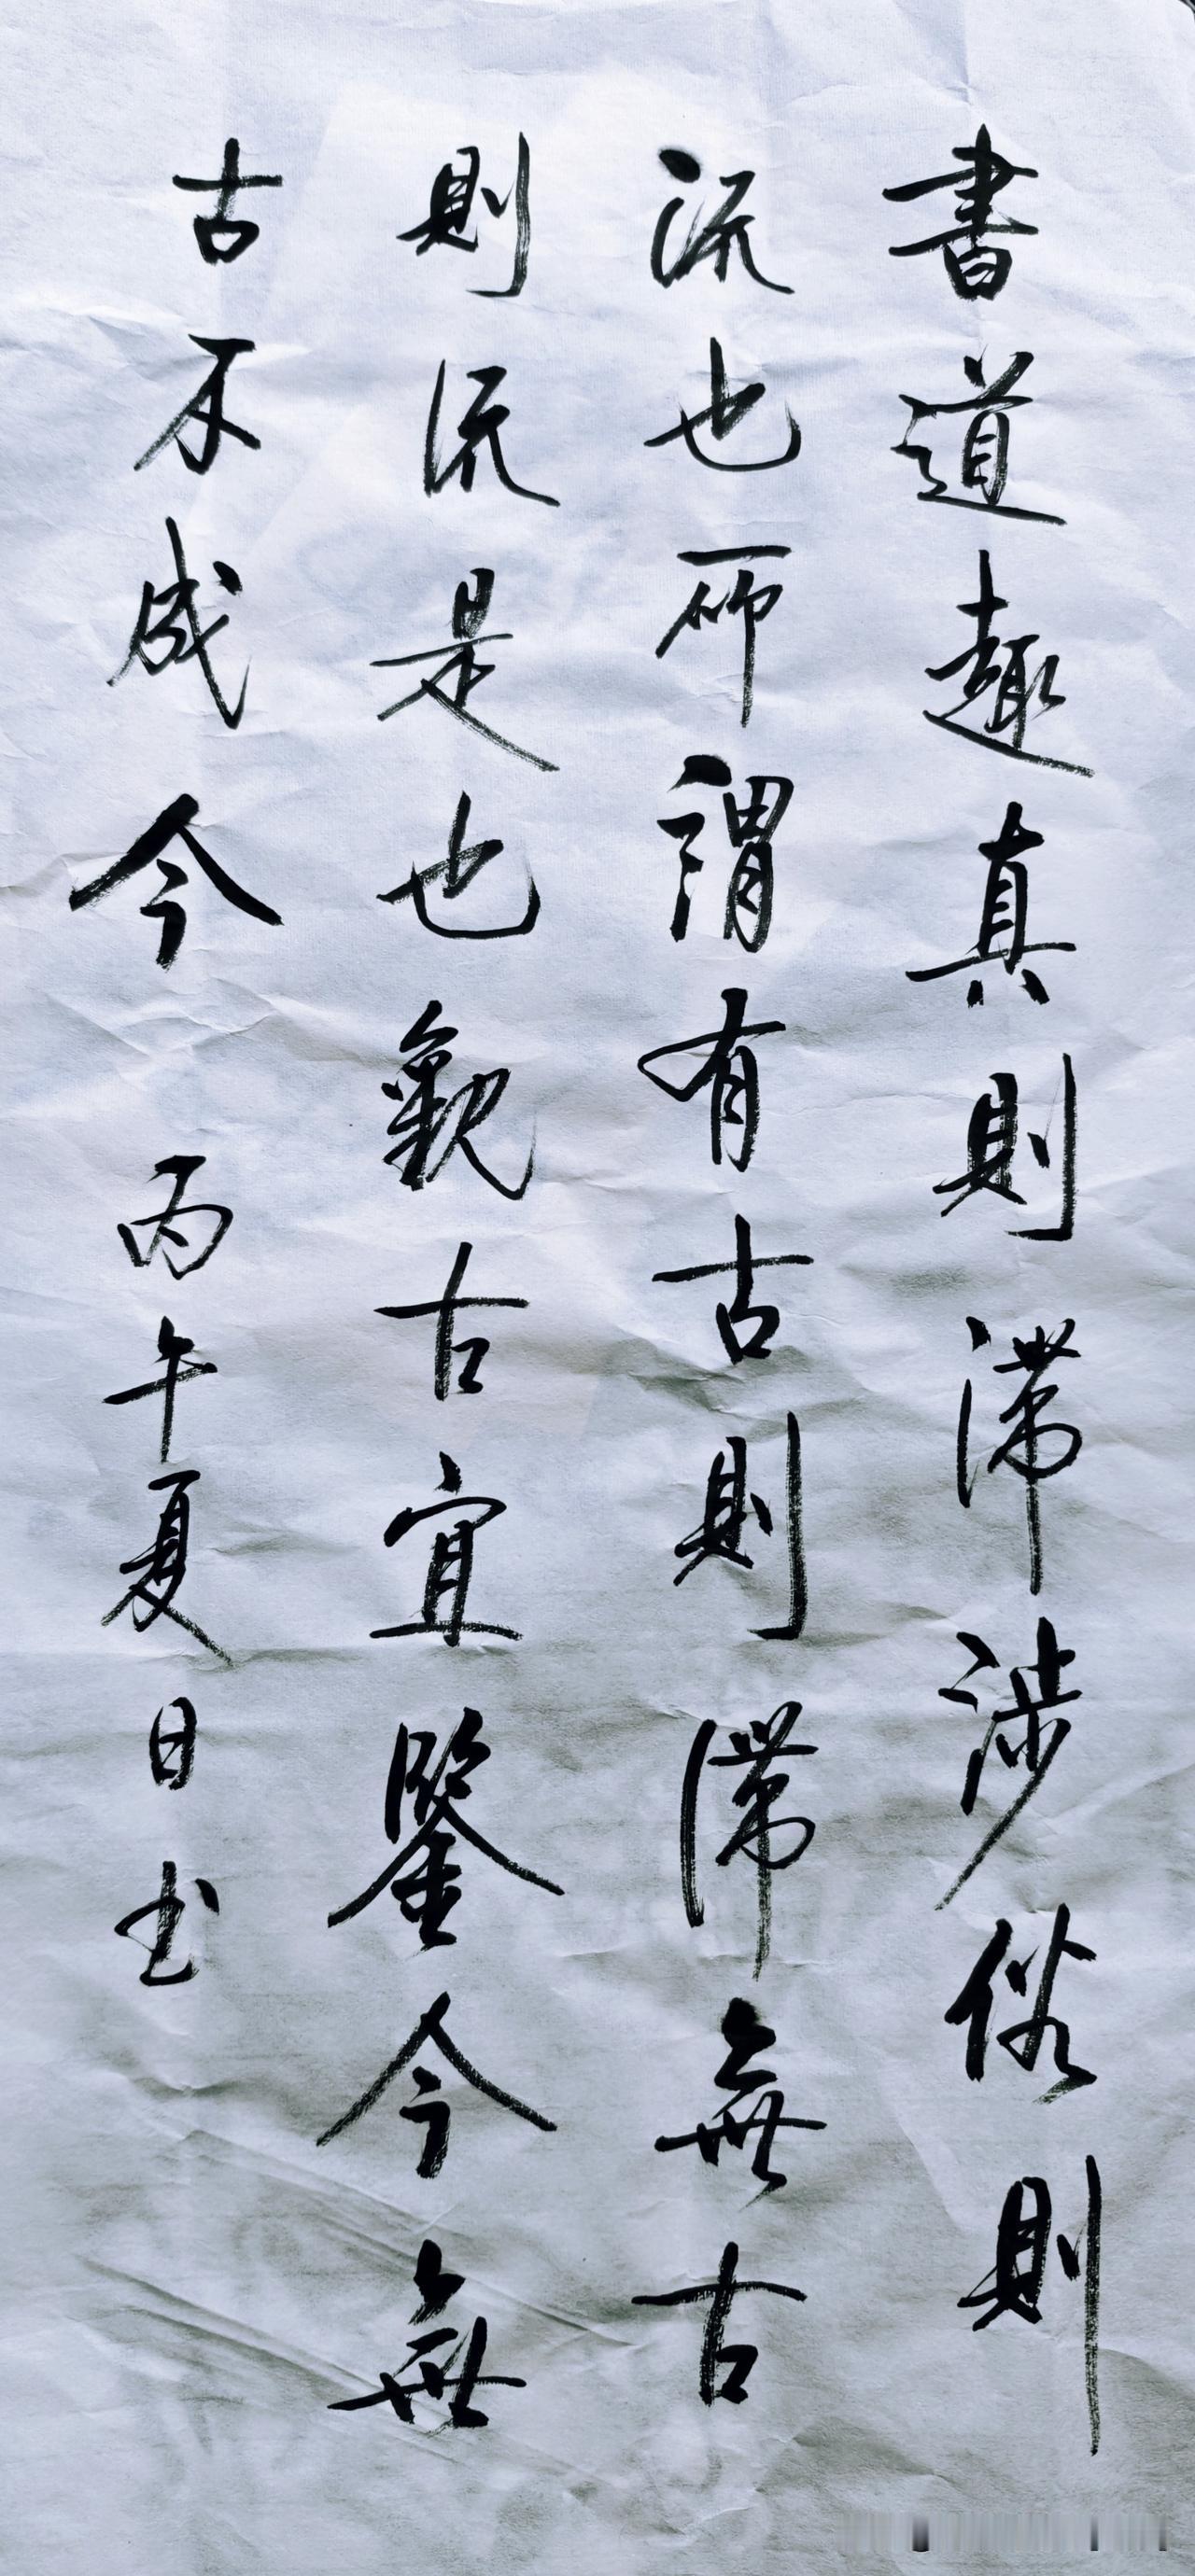 書道趣真則滞涉俗則
流也所謂有古則滞無古
則流是也觀古宜鑒今無
古不成今 丙午夏日书